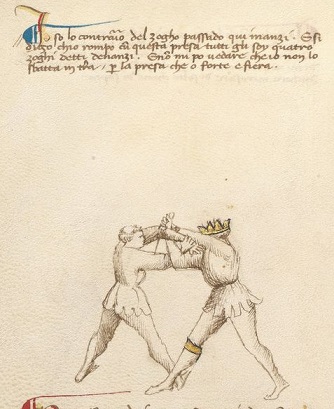 Io so lo contrario del zogho passado qui inanzi. E si
digo ch'io rompo cu questa presa tutti gli soy quatro
zoghi detti denanzi. E no mi pò vedare che io non lo
sbatta in t'ra, p la presa che ò forte e fiera.